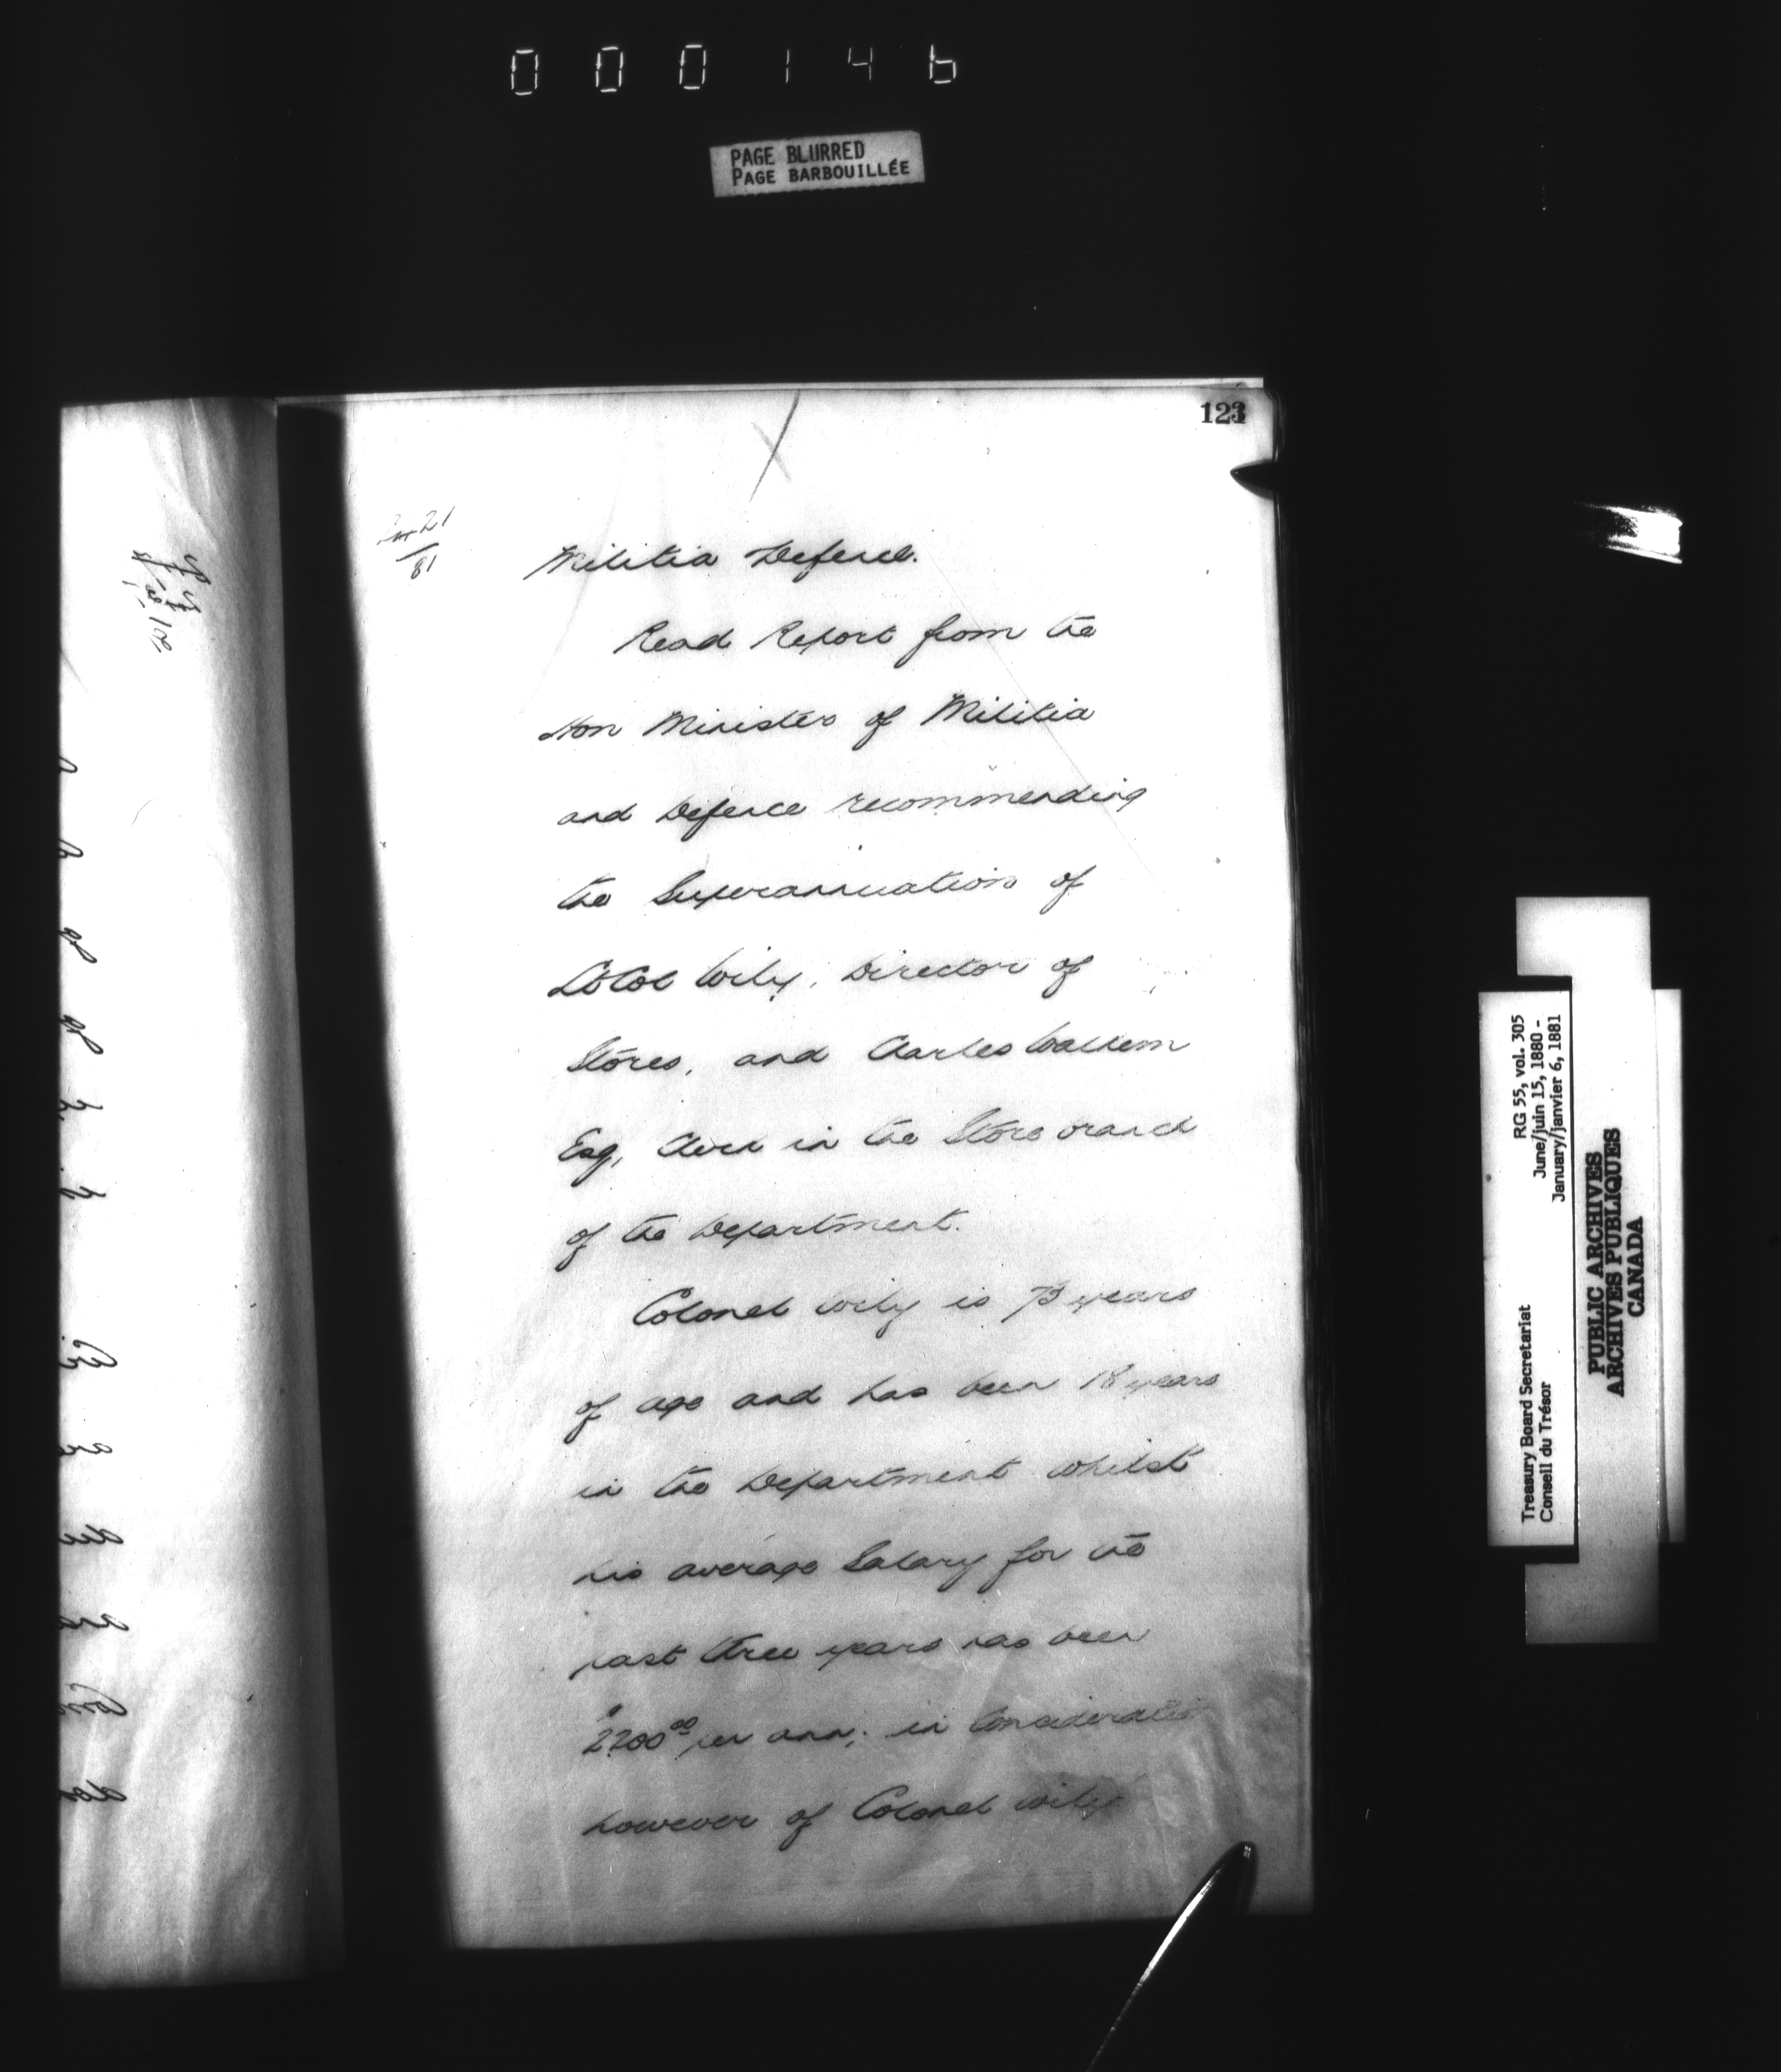 000146
PAGE BLURRED
PAGE BARBOUILLÉE
123
21
81
Militia Defence.
Read Report from the
Hon Minister of Militia
and Defence recommending
the Superannuation of
Lt Col Wily, Director of
Stores, and Charles Walkem
Esq, Clerk in the Store branch
of the Department.
Colonel Wily is 73 years
of age and has been 18 years
in the Department whilst
his average Salary for the
past three years has been
$2200 00 per ann; in Consideration
however of Colonel Wily
RG 55, vol. 305
June/juin 15, 1880 -
January/janvier 6, 1881
Treasury Board Secretariat
Conseil du Trésor
PUBLIC ARCHIVES
ARCHIVES PUBLIQUES
CANADA